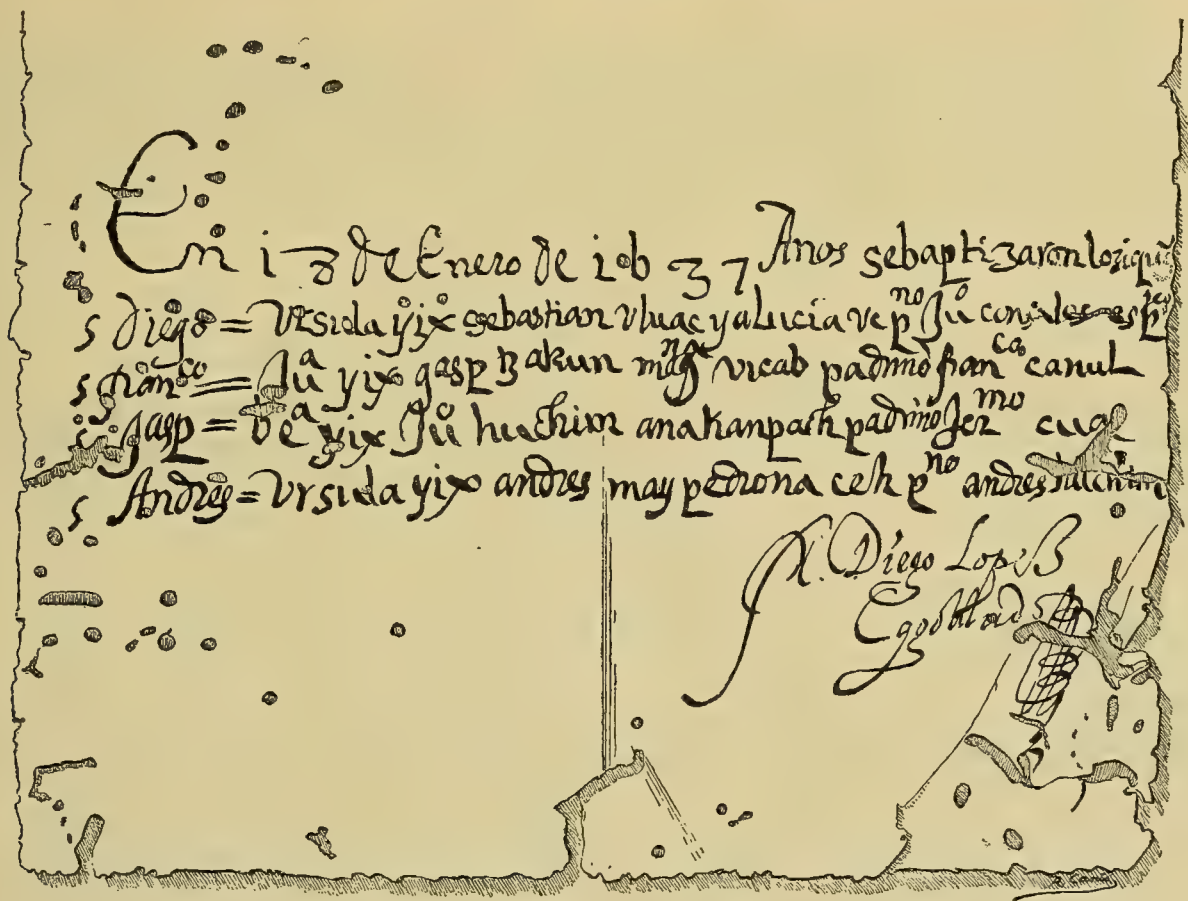 En 13 de Enero de 1637 Años sebaptizaron losique
s diego = Vrsula yix sebastian vluac yalucia vc pno Juo
s fianco = Jua yix gasp tzakun vicab padrino francco canul
Jasp = yix Juo huchim anakanpach padrino Jermo
s Andres = Vrsula yix andres may pedrona ceh pno andres
fr. Diego Lopez